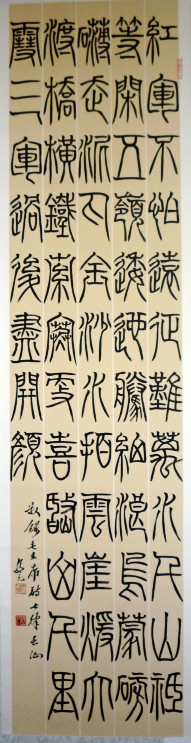 紅軍不怕遠征難萬水千山祗
等閑五嶺逶迤騰細浪烏蒙磅
礴走泥丸金沙水拍雲崖煖大
渡橋橫鐵索寒更喜岷山千里
雪三軍過後盡開顏
敬錄毛主席詩七律長征